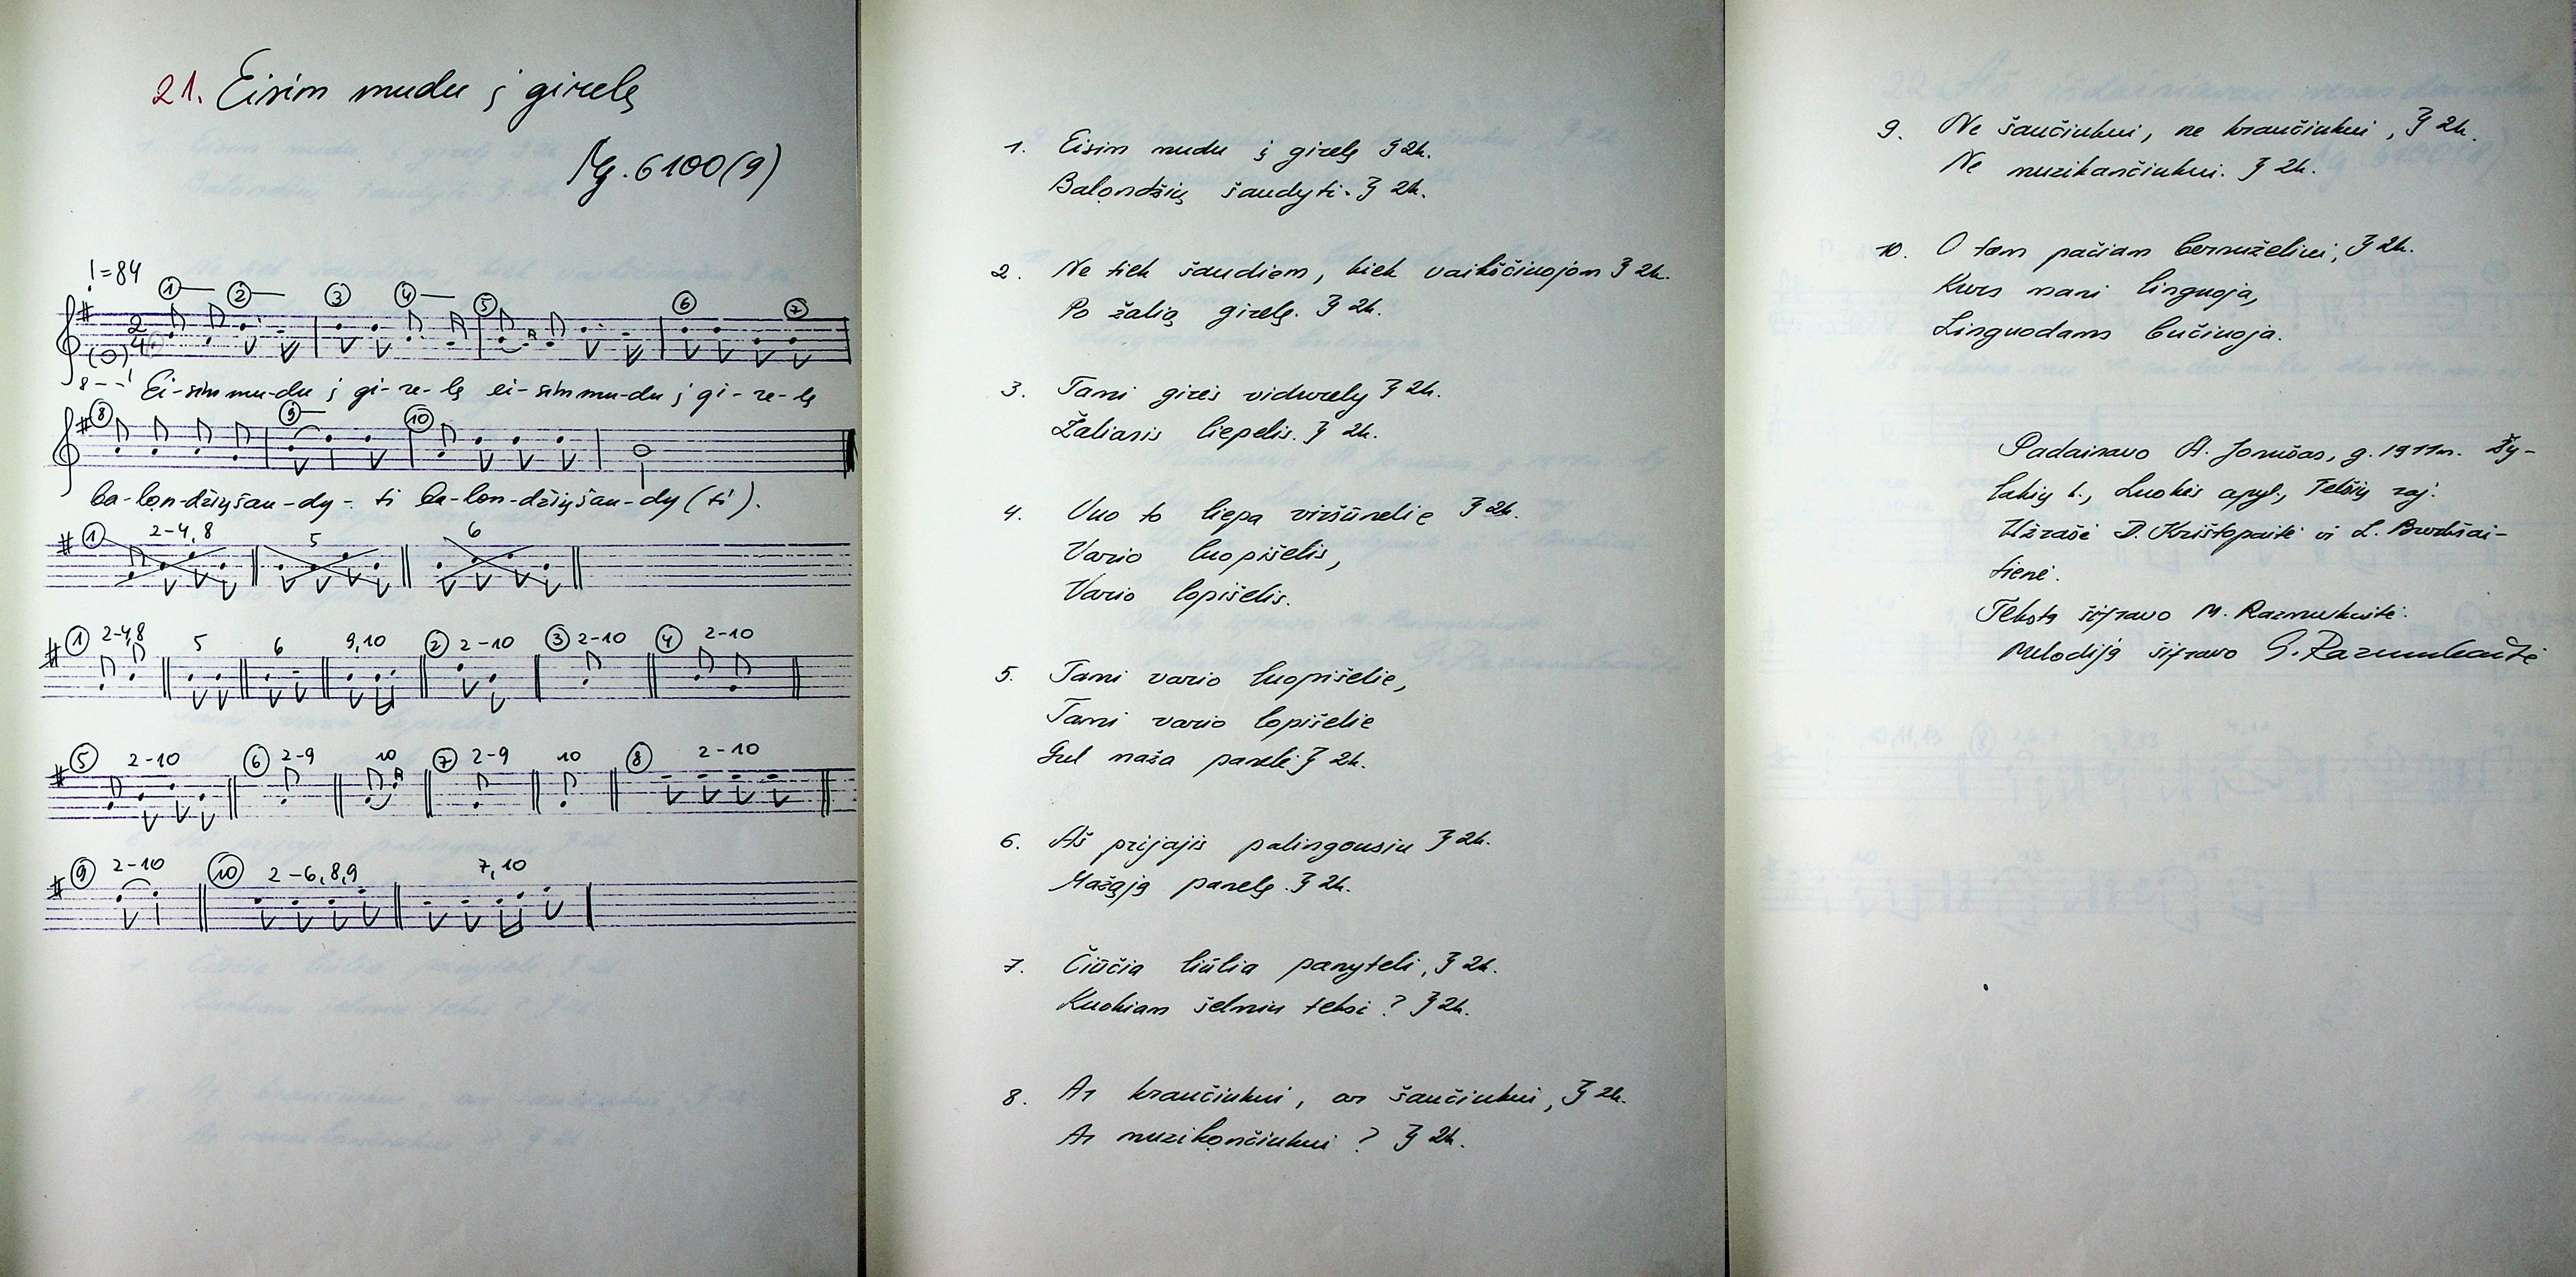 21. Eisim mudu į girelę
Mg. 6100(9)
! = 84
① ② ③ ④ ⑤ ⑥ ⑦
2
4
8 - - !
Ei-sim mu-du į gi-re-lę ei-sim mu-du į gi-re-lę
⑧ ⑨ ⑩
ba-lon-džių šau-dy-ti ba-lon-džių šau-dy(ti).
① 2-4,8 5 6
① 2-4,8 5 6 9,10 ② 2-10 ③ 2-10 ④ 2-10
⑤ 2-10 ⑥ 2-9 10 ⑦ 2-9 10 ⑧ 2-10
⑨ 2-10 ⑩ 2-6,8,9 7,10
1. Eisim mudu į girelę } 2k.
Balondžių šaudyti. } 2k.
2. Ne tiek šaudiem, kiek vaikščinojom } 2k.
Po žalią girelę. } 2k.
3. Tami girės vidurely } 2k.
Žaliasis liepelis. } 2k.
4. Vuo to liepa viršūnelie } 2k.
Vario luopišelis,
Vario lopišelis.
5. Tami vario luopišelie,
Tami vario lopišelie
Gul maža panelė } 2k.
6. Aš prijajis palingousiu } 2k.
Mažąją panelę. } 2k.
7. Čiūčia liūlia panyteli, } 2k.
Kuokiam šelmiu teksi? } 2k.
8. Ar kraučiukui, ar šaučiukui, } 2k.
Ar muzikončiukui? } 2k.
9. Ne šaučiukui, ne kraučiukui, } 2k.
Ne muzikančiukui. } 2k.
10. O tam pačiam bernuželiui, } 2k.
Kurs mani linguoja,
Linguodams bučiuoja.
Padainavo A. Jonušas, g. 1911m.
Luokės apyl., Telšių raj.
Užrašė D. Krištopaitė ir L.
tienė.
Tekstą šifravo M. Razmukaitė.
Melodiją šifravo G. Razmukaitė